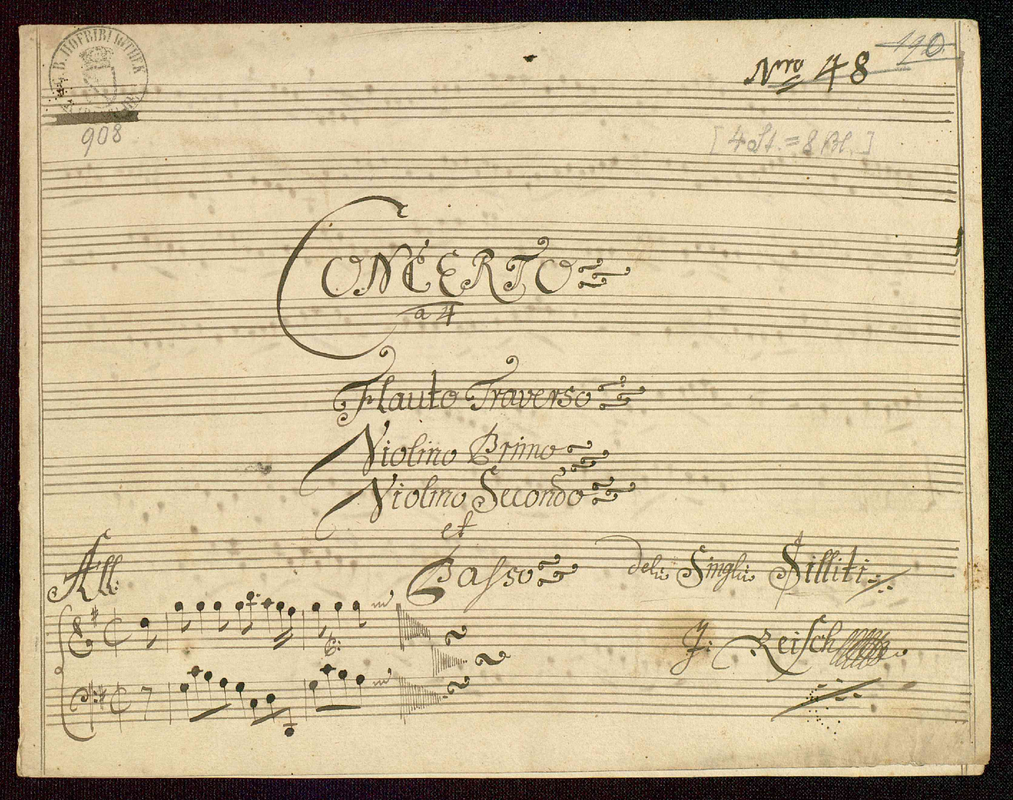 B. HOFBIBLIOTHEK
908
Nrro 48
120
[4 St. = 8 Bl.]
CONCERTO
a 4
Flauto Traverso
Violino Primo
Violino Secondo
et
Basso
Del: Singli: Silliti
All:
J: Reisch